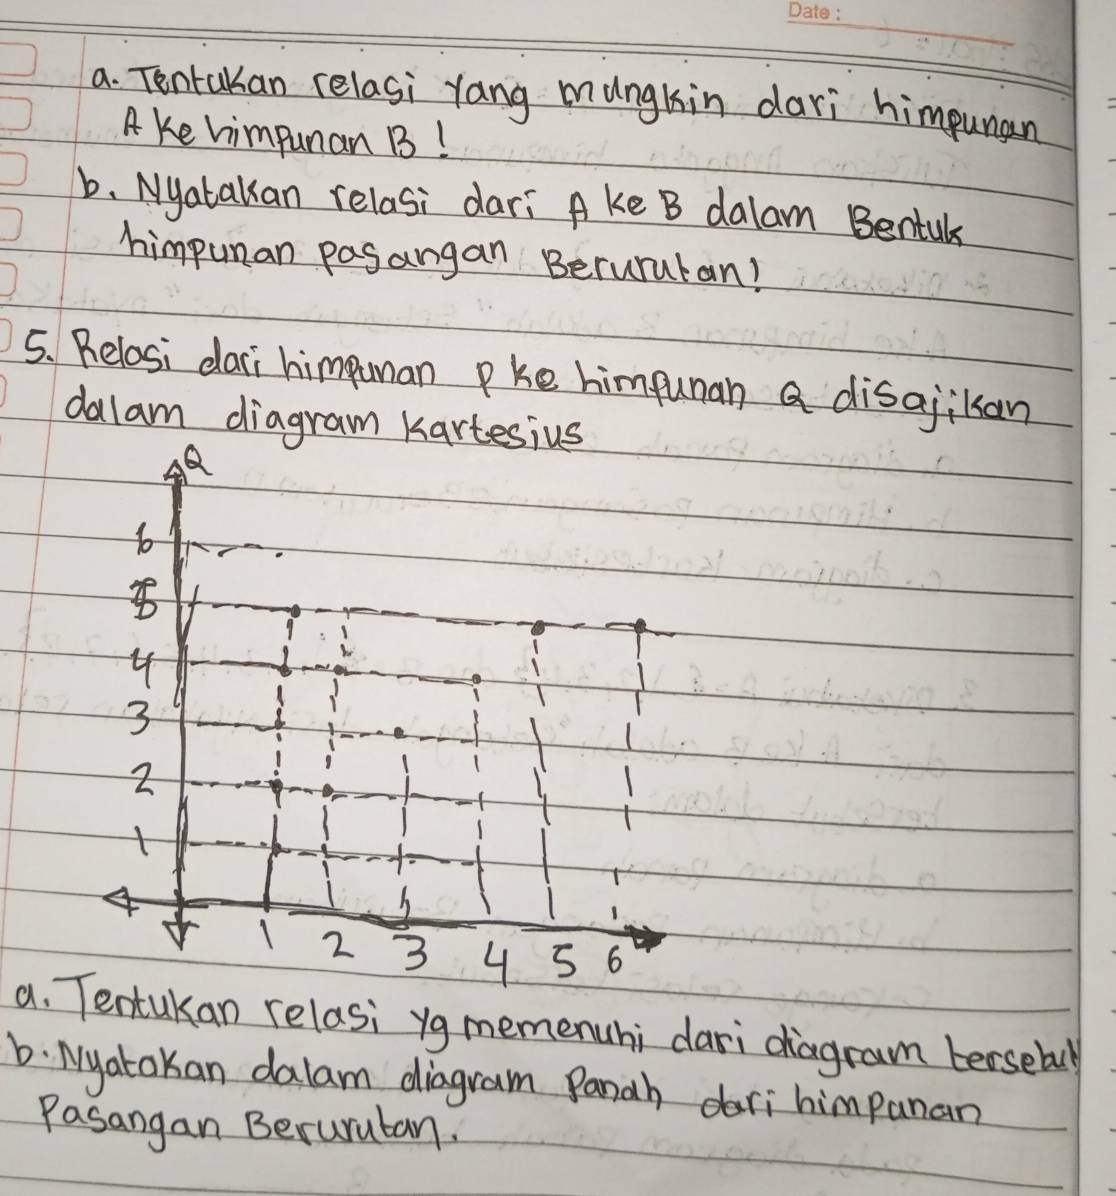 Date:
a. Tentukan relasi yang mungkin dari himpunan
A ke himpunan B!
b. Nyatakan relasi dari A ke B dalam Bentuk
himpunan pasangan Berurutan!
5. Relasi dari himpunan P ke himpunan Q disajikan
dalam diagram kartesius
Q
6
5
4
3
2
1
1 2 3 4 5 6
a. Tentukan relasi yg memenuhi dari diagram tersebut
b. Nyatakan dalam diagram Panah dari himpunan
Pasangan Berurutan.